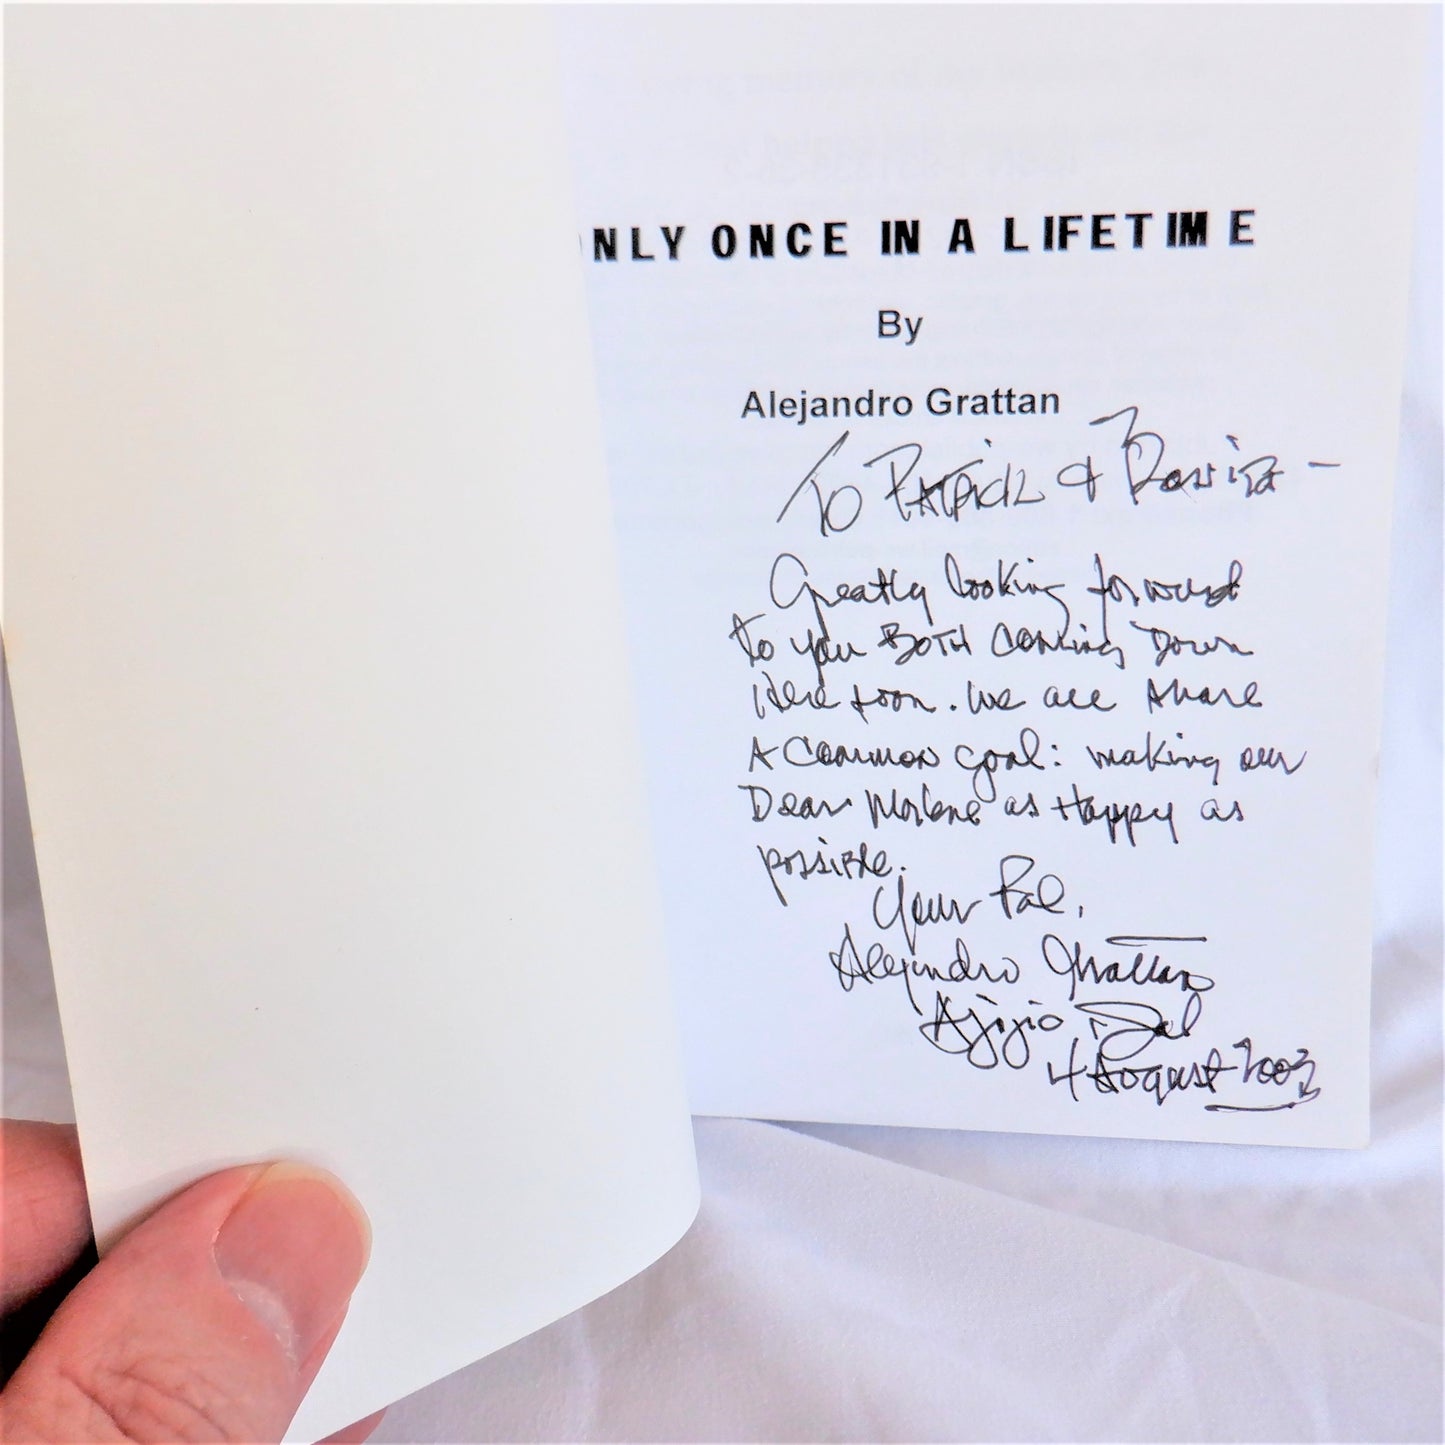 NLY ONCE IN A LIFETIME
By
Alejandro Grattan
To Patrick &
Greatly looking forward
to you BOTH coming Down
Here soon. We all share
A common goal: making our
Dear as Happy as
possible.
Your Pal,
Alejandro Grattan
Ajijic Jal
4 August 2003